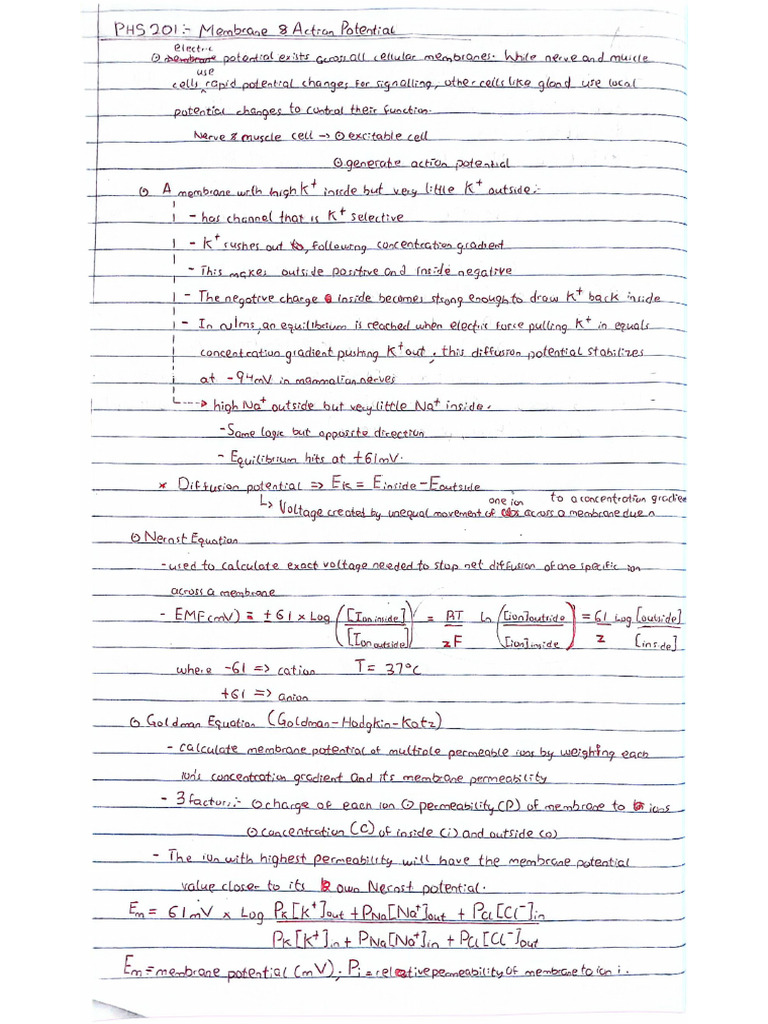 PHS201:- Membrane & Action Potential
electric
⊙ membrane potential exists across all cellular membranes. While nerve and muscle
use
cells rapid potential changes for signalling, other cells like gland use local
potential changes to control their function.
Nerve & muscle cell → ⊙ excitable cell
⊙ generate action potential
⊙ A membrane with high K⁺ inside but very little K⁺ outside:-
- has channel that is K⁺ selective
- K⁺ rushes out, following concentration gradient
- This makes outside positive and inside negative
- The negative charge inside becomes strong enough to draw K⁺ back inside
- In ~1ms, an equilibrium is reached when electric force pulling K⁺ in equals
concentration gradient pushing K⁺ out, this diffusion potential stabilizes
at -94mV in mammalian nerves
→ high Na⁺ outside but very little Na⁺ inside.
- Same logic but opposite direction
- Equilibrium hits at +61mV.
* Diffusion potential => Eₖ = Einside - Eoutside
one ion to a concentration gradie
↳ Voltage created by unequal movement of across a membrane due
⊙ Nernst Equation
- used to calculate exact voltage needed to stop net diffusion of one specific ion
across a membrane
- EMF(mV) = ±61 x Log ([Ion inside]/[Ion outside]) = RT/zF ln ([ion]outside/[ion]inside) = 61/z Log [outside]/[inside]
where -61 => cation T = 37°C
+61 => anion
⊙ Goldman Equation (Goldman-Hodgkin-Katz)
- calculate membrane potential of multiple permeable ions by weighing each
ion's concentration gradient and its membrane permeability
- 3 factors:- ⊙ charge of each ion ⊙ permeability (P) of membrane to ions
⊙ concentration (C) of inside (i) and outside (o)
- The ion with highest permeability will have the membrane potential
value closer to its own Nernst potential.
Eₘ = 61mV x Log PK[K⁺]out + PNa[Na⁺]out + PCl[Cl⁻]in
PK[K⁺]in + PNa[Na⁺]in + PCl[Cl⁻]out
Eₘ = membrane potential (mV). Pᵢ = relative permeability of membrane to ion i.